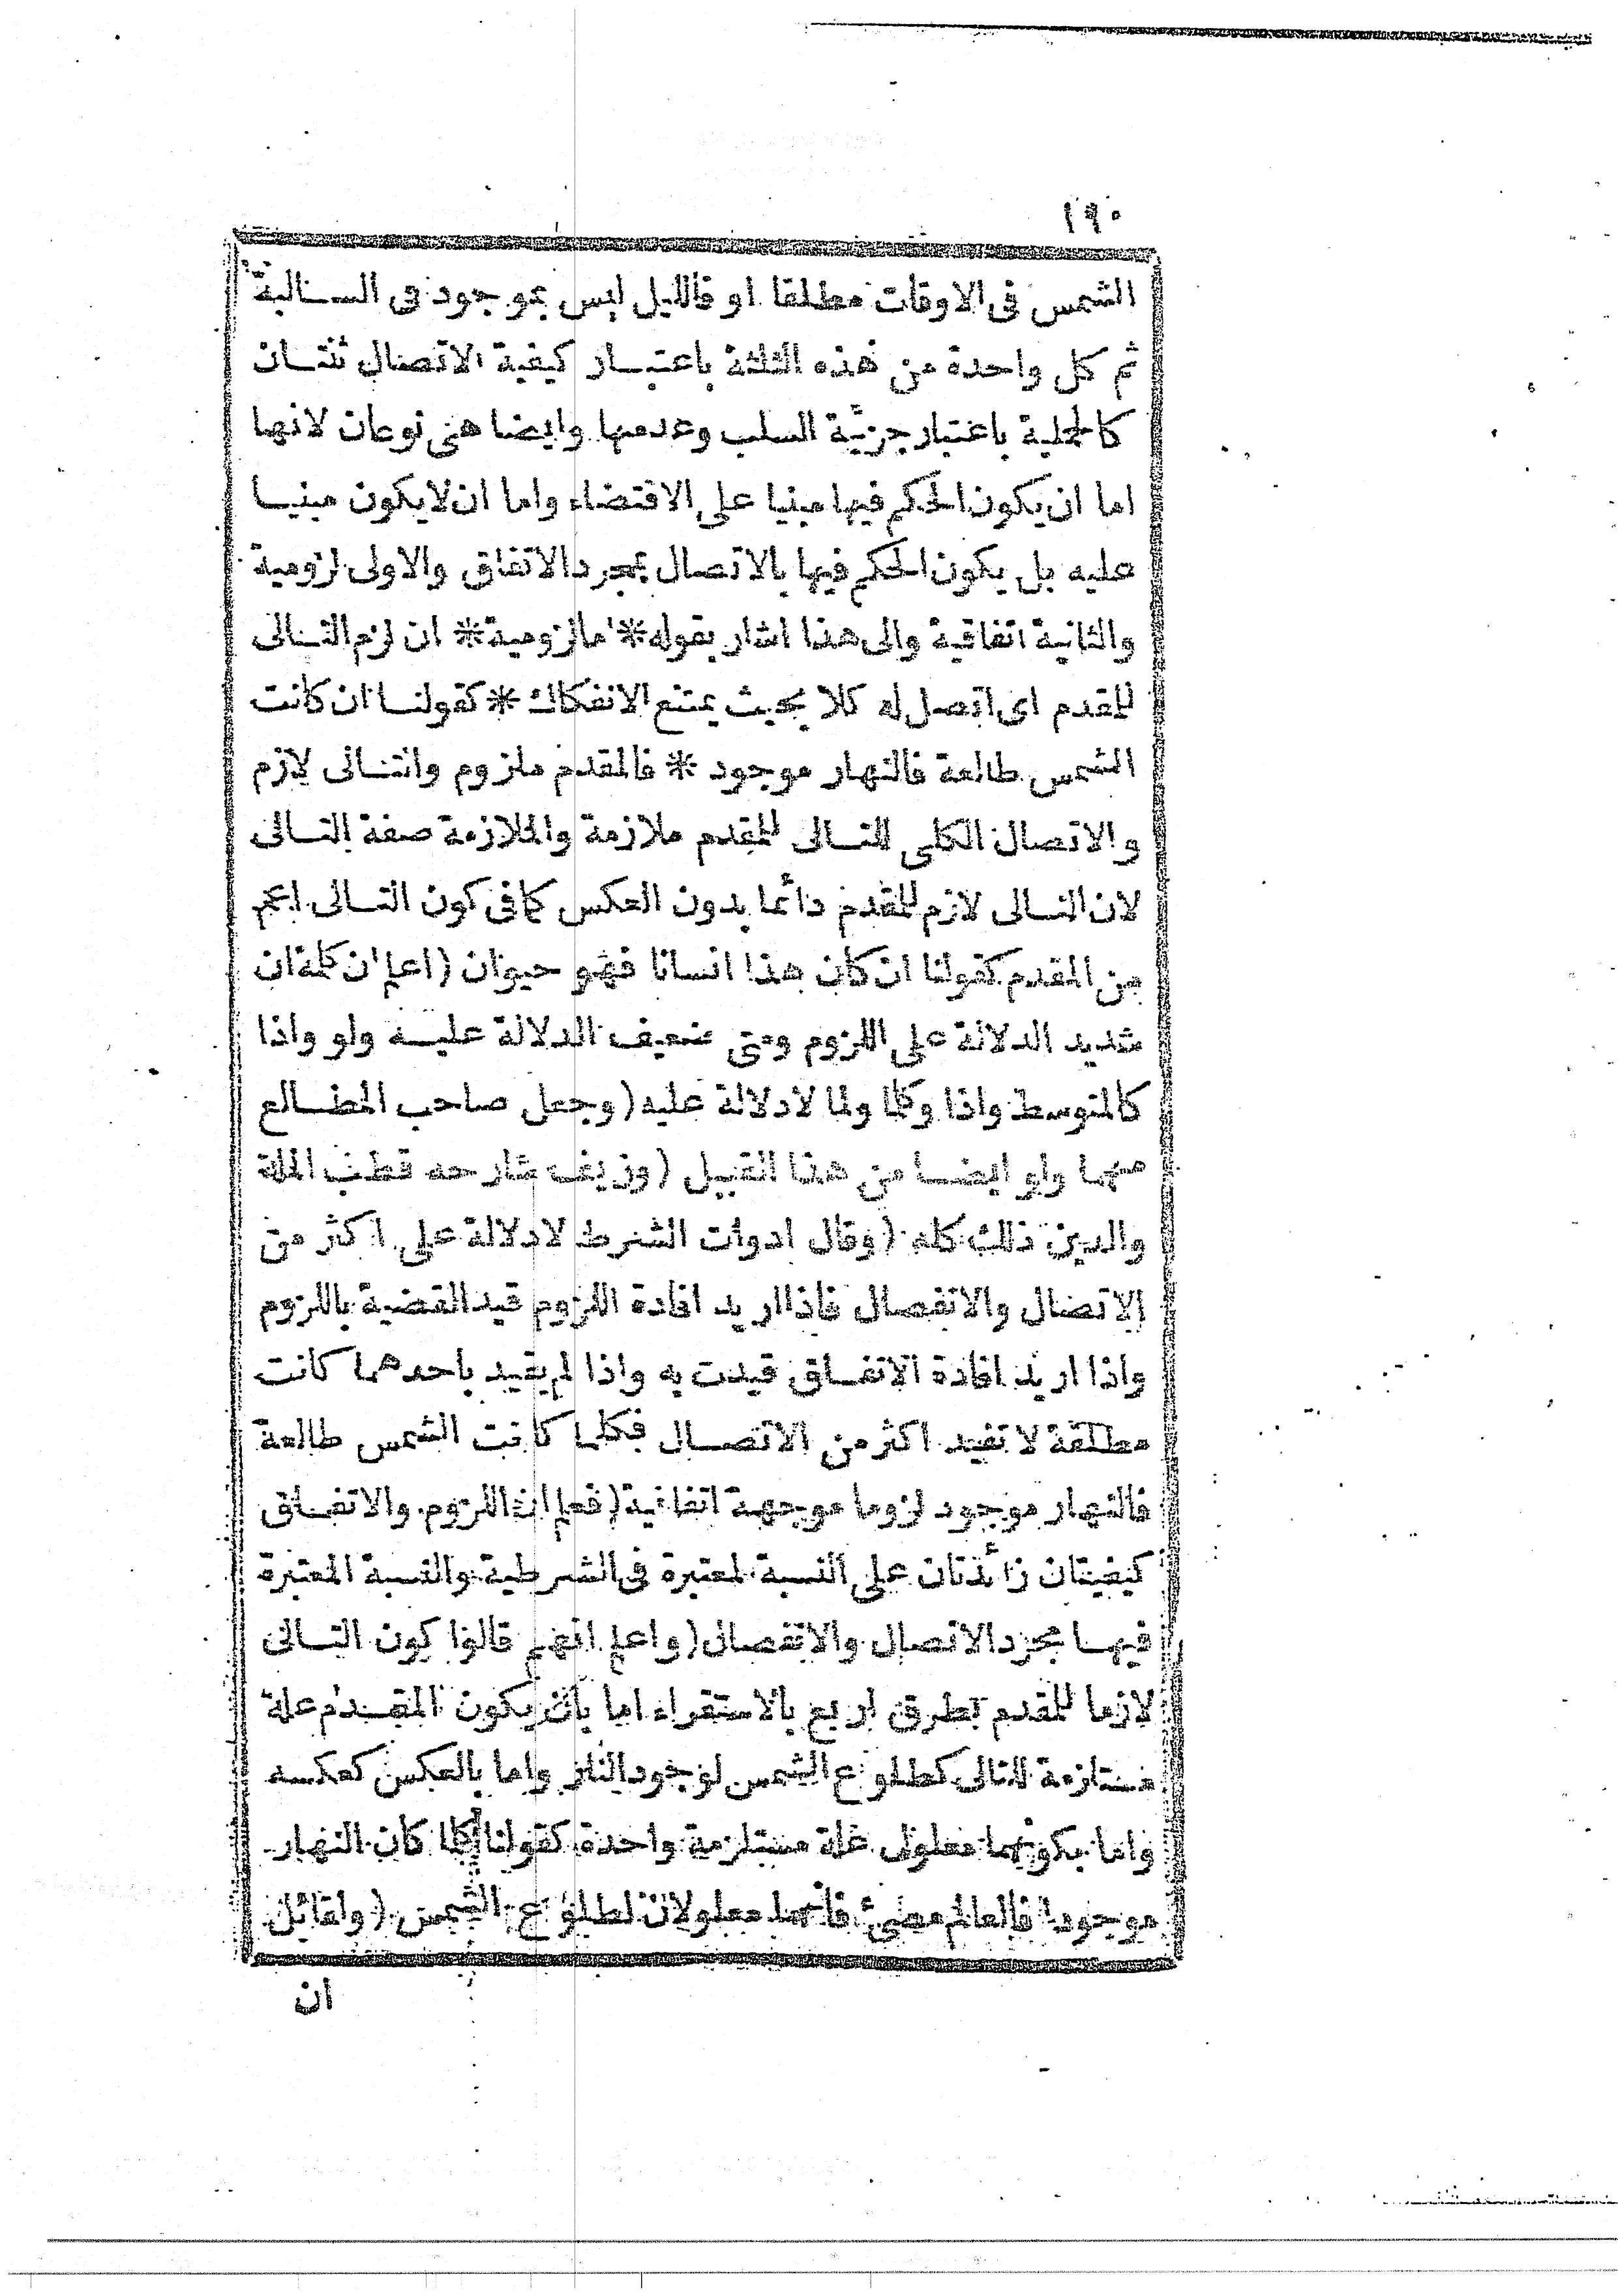 ١٩٠
الشمس فى الاوقات مطلقا او فالليل ليس بموجود فى السالبة
ثم كل واحدة من هذه الثلثة باعتبار كيفية الاتصال ثنتان
كالحملية باعتبار جزئية السلب وعدمها وايضا هى نوعان لانها
اما ان يكون الحكم فيها مبنيا على الاقتضاء واما ان لا يكون مبنيا
عليه بل يكون الحكم فيها بالاتصال بمجرد الاتفاق والاولى لزومية
والثانية اتفاقية والى هذا اشار بقوله * اما لزومية * ان لزم التالى
للمقدم اى اتصل له كلا بحيث يمتنع الانفكاك * كقولنا ان كانت
الشمس طالعة فالنهار موجود * فالمقدم ملزوم والتالى لازم
والاتصال الكلى للتالى للمقدم ملازمة والملازمة صفة التالى
لان التالى لازم للمقدم دائما بدون العكس كما فى كون التالى اعم
من المقدم كقولنا ان كان هذا انسانا فهو حيوان (اعلم ان كلمة ان
شديد الدلالة على اللزوم ومتى ضعيف الدلالة عليه ولو واذا
كالمتوسط واذا وكلما ولما لا دلالة عليه (وجعل صاحب المطالع
مهما ولو ايضا من هذا القبيل (وزيف شارحه قطب الملة
والدين ذلك كله (وقال ادوات الشرط لا دلالة على اكثر من
الاتصال والانفصال فاذا اريد افادة اللزوم قيد القضية باللزوم
واذا اريد افادة الاتفاق قيدت به واذا لم يقيد باحدهما كانت
مطلقة لا تفيد اكثر من الاتصال فكلما كانت الشمس طالعة
فالنهار موجود لزوما موجهة اتفاقية (فعلم ان اللزوم والاتفاق
كيفيتان زائدتان على النسبة المعتبرة فى الشرطية والنسبة المعتبرة
فيها مجرد الاتصال والانفصال (واعلم انهم قالوا كون التالى
لازما للمقدم بطرق اربع بالاستقراء اما بان يكون المقدم علة
مستلزمة للتالى كطلوع الشمس لوجود النهار واما بالعكس كعكسه
واما بكونهما معلولى علة مستلزمة واحدة كقولنا كلما كان النهار
موجودا فالعالم مضئ فانهما معلولان لطلوع الشمس (ولقائل
ان